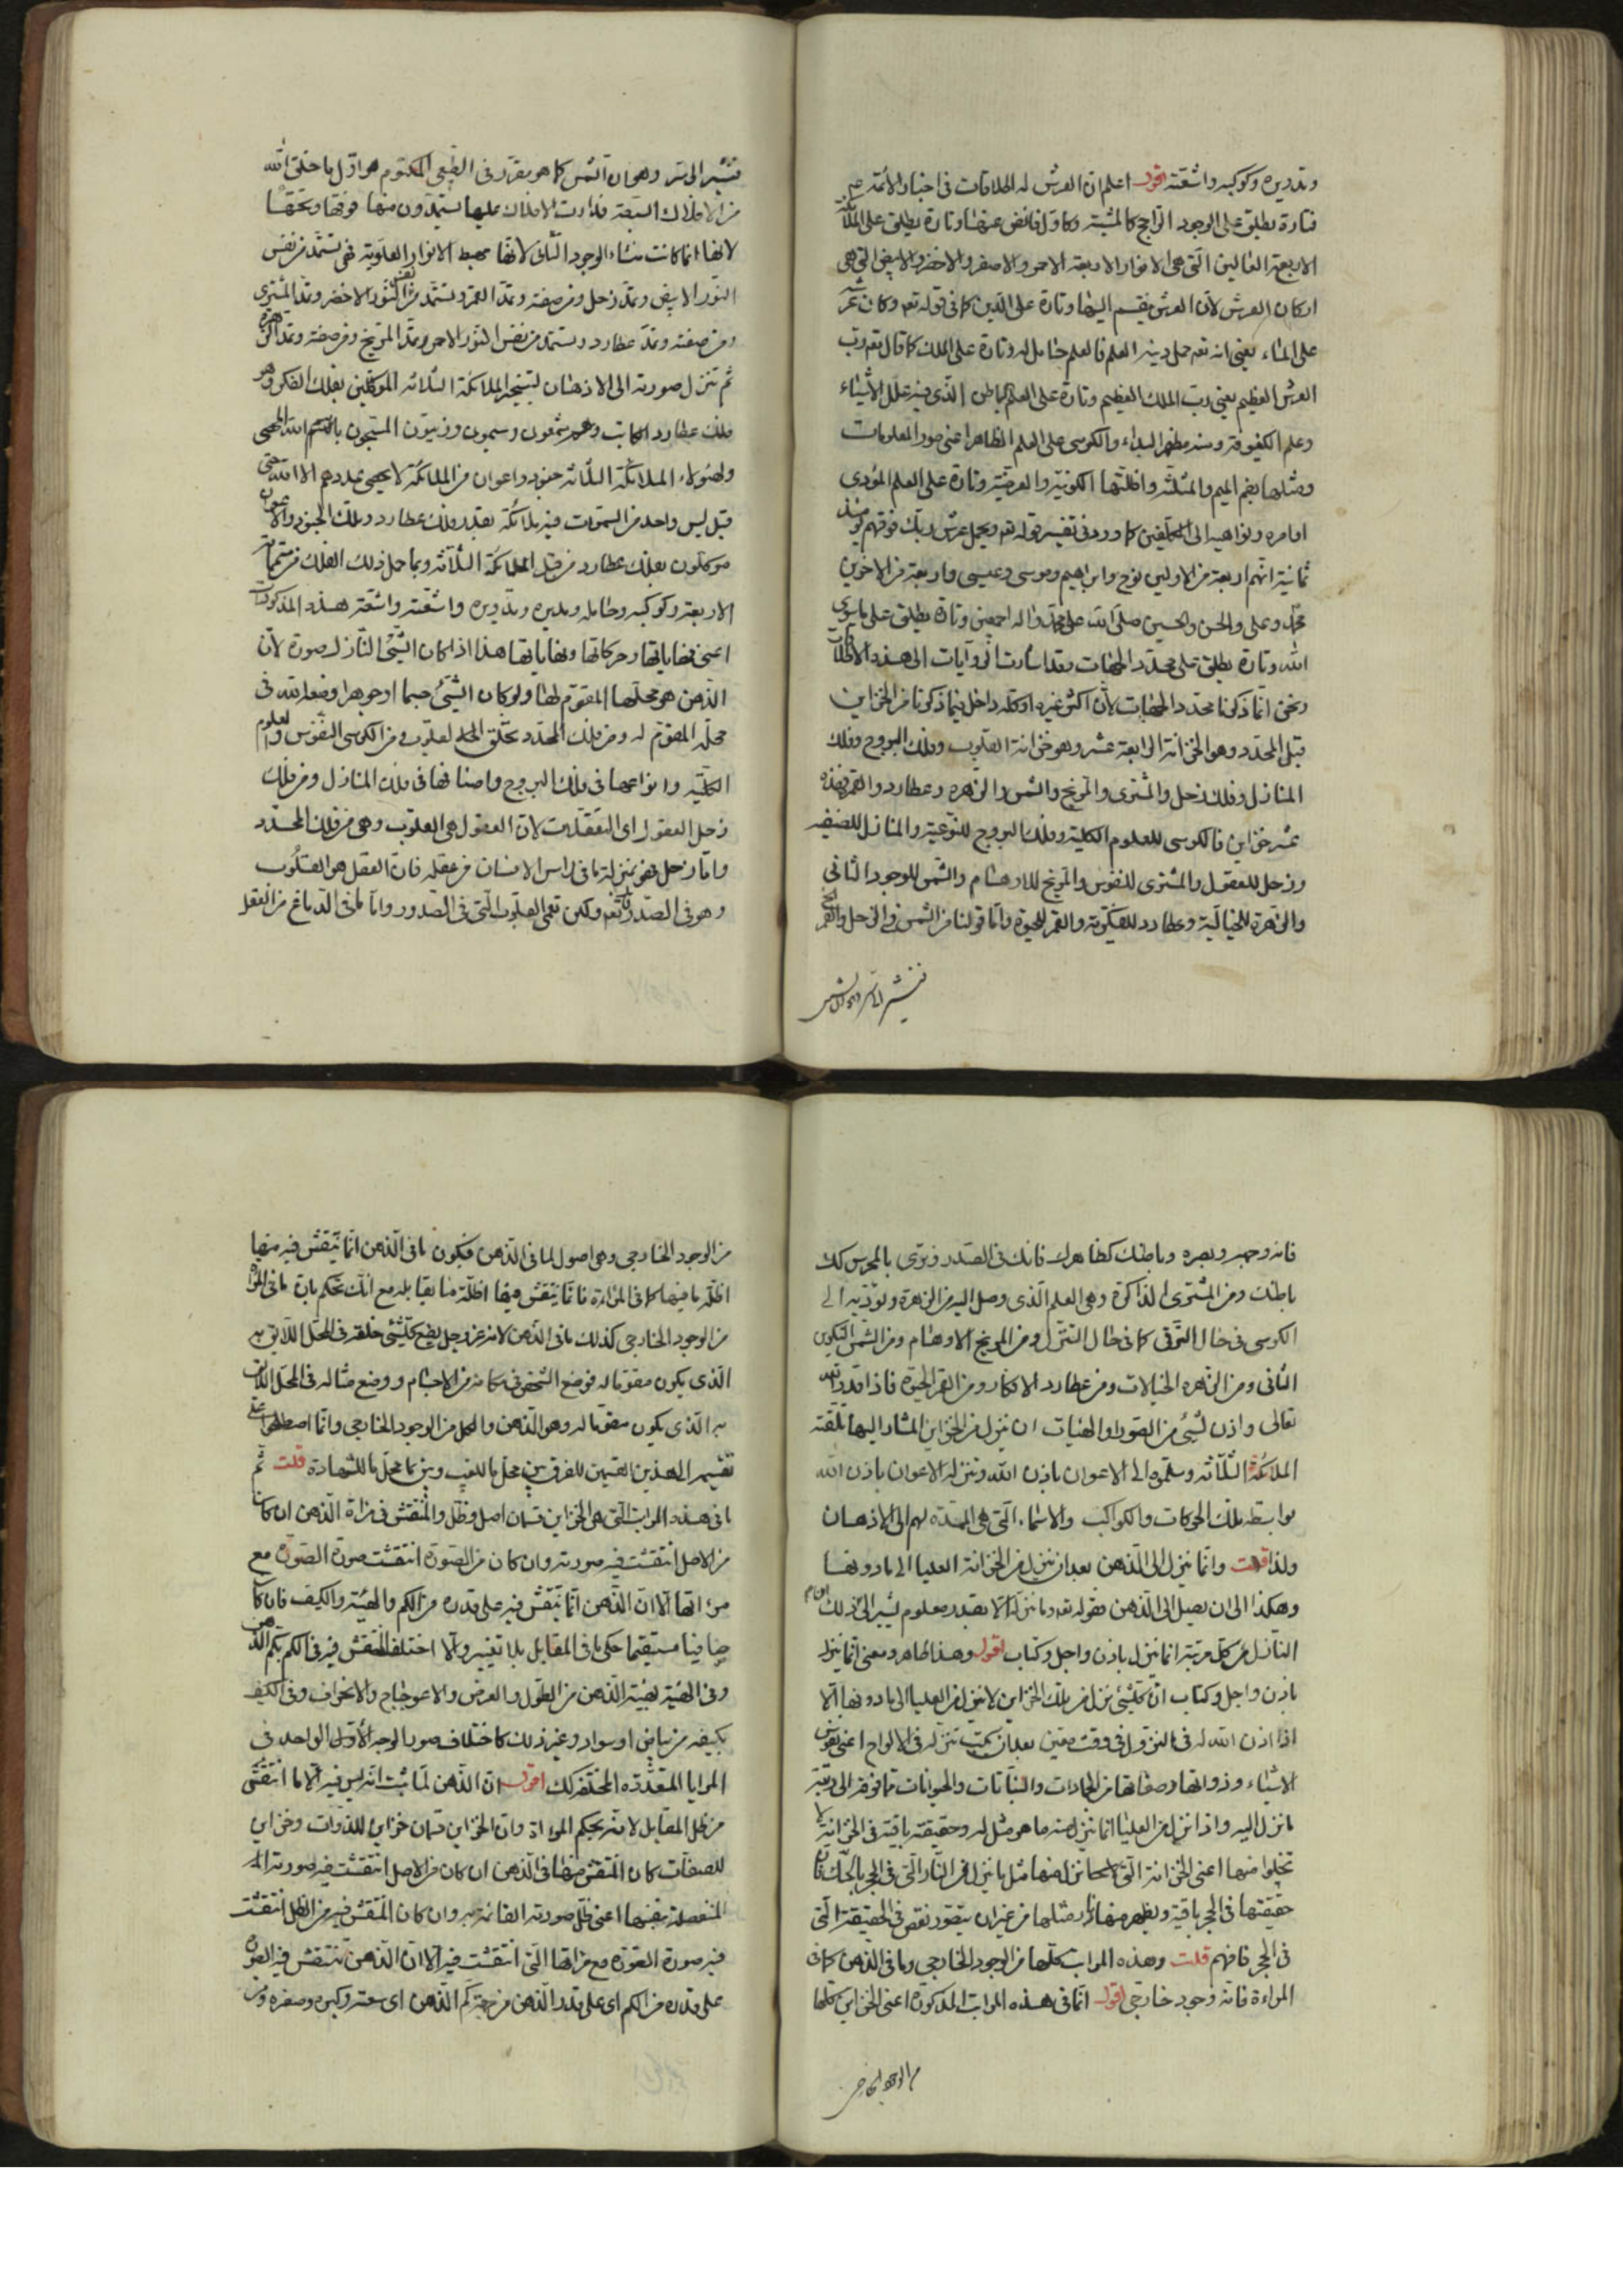 وتدويره وكوكبه واشعته اقول اعلم ان العرش له اطلاقات في اخبار الائمة ع
فتارة يطلق على الوجود الراجح كالمشية وكاول فائض عنها وتارة يطلق على الملائكة
الاربعة العالين التي هي الانوار الاربعة الاحمر والاصفر والاخضر والابيض التي هي
اركان العرش لان العرش ينقسم اليها وتارة على الدين كما في قوله تعه وكان عرشه
على الماء يعني انه تعه حمل دينه العلم فالعلم حامل له وتارة على الملك كما قال تعه رب
العرش العظيم يعني رب الملك العظيم وتارة على العلم الباطن الذي فيه علل الاشياء
وعلم الكيفوفة ومنه مظهر البداء والكرسي على العلم الظاهر اعني صور المعلومات
ومثلها بضم الميم والمثلثة واظلتها الكونية والعرضية وتارة على العلم المؤدى
اوامره ونواهيه الى المكلفين كما ورد في تفسير قوله تعه ويحمل عرش ربك فوقهم يومئذ
ثمانية انهم اربعة من الاولين نوح وابراهيم وموسى وعيسى واربعة من الاخرين
محمد وعلى والحسن والحسين صلى الله على محمد واله اجمعين وتارة يطلق على ما سوى
الله وتارة يطلق على محدد الجهات وقد اشارت اني وآيات الى هذه الاطلاقات
ونحن انما ذكرنا محدد الجهات لان اكثر غيره او كله داخل فيما ذكرنا من الخزاين
قبل المحدد وهو الخزانة الرابعة عشر وهو خزانة القلوب وفلك البروج وفلك
المنازل وفلك زحل والمشتري والمريخ والشمس والزهرة وعطارد والقمر فهذه
عشر خزاين فالكرسي للعلوم الكلية وفلك البروج للنوعية والمنازل للصنفية
وزحل للعقول والمشتري للنفوس والمريخ للاوهام والشمس للوجود الثاني
والزهرة للخيالية وعطارد للفكرية والقمر للحيوة واما قولنا من الشمس في زحل والقمر الخ
فنشير الى سر وهو ان الشمس
فنشير الى سر وهو ان الشمس كما هو مقرر في الطبيعي المكتوم هو اول ما خلق الله
من الافلاك السبعة فدارت الافلاك عليها يستمدون منها فوقها وتحتها
لانها انما كانت منشاء الوجود الثاني لانها مهبط الانوار العلوية فهي تستمد من نفس
النور الابيض وتمد زحل ومن صفته وتمد القمر وتستمد من نفس النور الاخضر وتمد المشتري
ومن صفته وتمد عطارد وتستمد من نفس النور الاحمر وتمد المريخ ومن صفته وتمد الزهرة
ثم تنزل صورته الى الاذهان بتسخير الملائكة الثلاثة الموكلين بفلك الفكر وهو
فلك عطارد الكاتب وهم شمعون وسيمون وزيتون المسبحون باسم الله المحصي
ولهؤلاء الملائكة الثلاثة جنود واعوان من الملائكة لا يحصى عددهم الا الله حتى
قيل ليس واحد من السموات فيه ملائكة بقدر فلك عطارد وتلك الجنود والاعوان
موكلون بفلك عطارد من قبل الملائكة الثلاثة وبما حمل ذلك الفلك من متمماته
الاربعة وكوكبه وحامله ومديره وتدويره واشعته واشعة هذه المذكورات
اعني نهاياتها وحركاتها ونهاياتها هذا اذا كان الشيء النازل صورة لان
الذهن هو محلها المقوم لها ولو كان الشيء جسما او جوهرا وضعه الله في
محله المقوم له ومن فلك المحدد تخلق القلوب ومن الكرسي النفوس والعلوم
الكلية وانواعها في فلك البروج واصنافها في فلك المنازل ومن فلك
زحل العقول اي التعقلات لان العقول هي القلوب وهي من فلك المحدد
واما زحل فهو بمنزلة ما في راس الانسان من عقله فان العقل هو القلوب
وهو في الصدر قال تعه ولكن تعمى القلوب التي في الصدور واما ما في الدماغ من العقل
فانه وجهه وبصره وباطنك كظاهرك فانك في الصدر وترى بالحدس كك
باطنك ومن المشتري الذاكرة وهي العلم الذي وصل اليه من الزهرة وتؤديه الى
الكرسي في حال الترقي كما في حال التنزل ومن المريخ الاوهام ومن الشمس التكوين
الثاني ومن الزهره الخيالات ومن عطارد الافكار ومن القمر الحيوة فاذا قدر الله
تعالى واذن لشيء من الصور او الهيات ان ينزل من الخزاين المشار اليها تلقته
الملائكة الثلاثه وسلمته الى الاعوان باذن الله وتنزله الاعوان باذن الله
بواسطه تلك الحركات والكواكب والاسماء التي هي الممدة لهم الى الاذهان
ولذا قلت وانما ينزل الى الذهن بعد ان ينزل من الخزانة العليا الى ما دونها
وهكذا الى ان يصل الى الذهن فقوله تعه وما ننزله الا بقدر معلوم يشير الى ذلك
النازل من كل مرتبة انما ينزل باذن واجل وكتاب اقول وهذا ظاهر ومعنى انما ينزل
باذن واجل وكتاب ان كلشيء نزل من تلك الخزاين لا ينزل من العليا الى ما دونها الا
اذا اذن الله له في النزول في وقت معين بعد ان يكتب تنزله في الالواح اعني نفوس
الاشياء وذواتها وصفاتها من الجمادات والنباتات والحيوانات مما فوقه الى رتبة
ما نزل اليه واذا نزل من العليا انما ينزل منه ما هو مثل له وحقيقته باقية في الخزانة لا
تخلوا منها اعني الخزانة التي نزل منها مثل ما ينزل من النار التي في الحجر بالحك فان
حقيقتها في الحجر باقية ويظهر منها نار مثلها من غير ان يتصور نقص في الحقيقة التي
في الحجر فافهم قلت وهذه المراتب كلها من الوجود الخارجي وما في الذهن كما في
المراءة فانه وجود خارجي اقول انما في هذه المراتب المذكورة اعني الخزاين كلها
من الوجود الخارجي
من الوجود الخارجي وهي اصول لما في الذهن فيكون ما في الذهن انما ينتقش فيه منها
اظلة ما فيها كما في المراءة فانما ينتقش فيها اظلة ما يقابله مع انك تحكم بان ما في المراة
من الوجود الخارجي كذلك ما في الذهن لانه عز وجل يضع كلشيء خلقه في المحل اللايق به
الذي يكون مقوما له فوضع الشخص في مكانه من الاجسام ووضع مثاله في المحل اللايق
به الذي يكون مقوما له وهو الذهن والكل من الوجود الخارجي وانما اصطلحوا على
تقسيمه الى هذين القسمين للفرق بين محل ما للغيب وبين ما محل ما للشهادة قلت ثم
ما في هذه المراتب التي هي الخزاين قسمان اصل وظل والمنتقش في مراة الذهن ان كان
من الاصل انتقشت فيه صورته وان كان من الصورة انتقشت صورة الصورة مع
مراتها الا ان الذهن انما ينتقش فيه على قدره من الكم والهيئة والكيف فان كان
صافيا مستقيما حكى ما في المقابل بلا تغيير والا اختلف المنتقش فيه في الكم بكم الذهن
وفي الهيئة بهيئة الذهن من الطول والعرض والاعوجاج والانحراف وفي الكيف
بكيفه من بياض او سواد وغير ذلك كاختلاف صور الوجه الواحد في
المرايا المتعددة المختلفة كك اقول ان الذهن لما ثبت انه ليس فيه الا ما انتقش
من ظل المقابل لانه بحكم المراة وان الخزاين قسمان خزاين للذوات وخزاين
للصفات كان المنتقش منها في الذهن ان كان من الاصل انتقشت فيه صورته
المنفصلة بنفسها اعني ظل صورته القائمة به وان كان المنتقش فيه من الظل انتقشت
فيه صورة الصورة مع مراتها التي انتقشت فيه الا ان الذهن تنتقش فيه الصورة
على قدره من الكم اي على قدر الذهن من جهة كم الذهن اي سعته وكبره وصغره